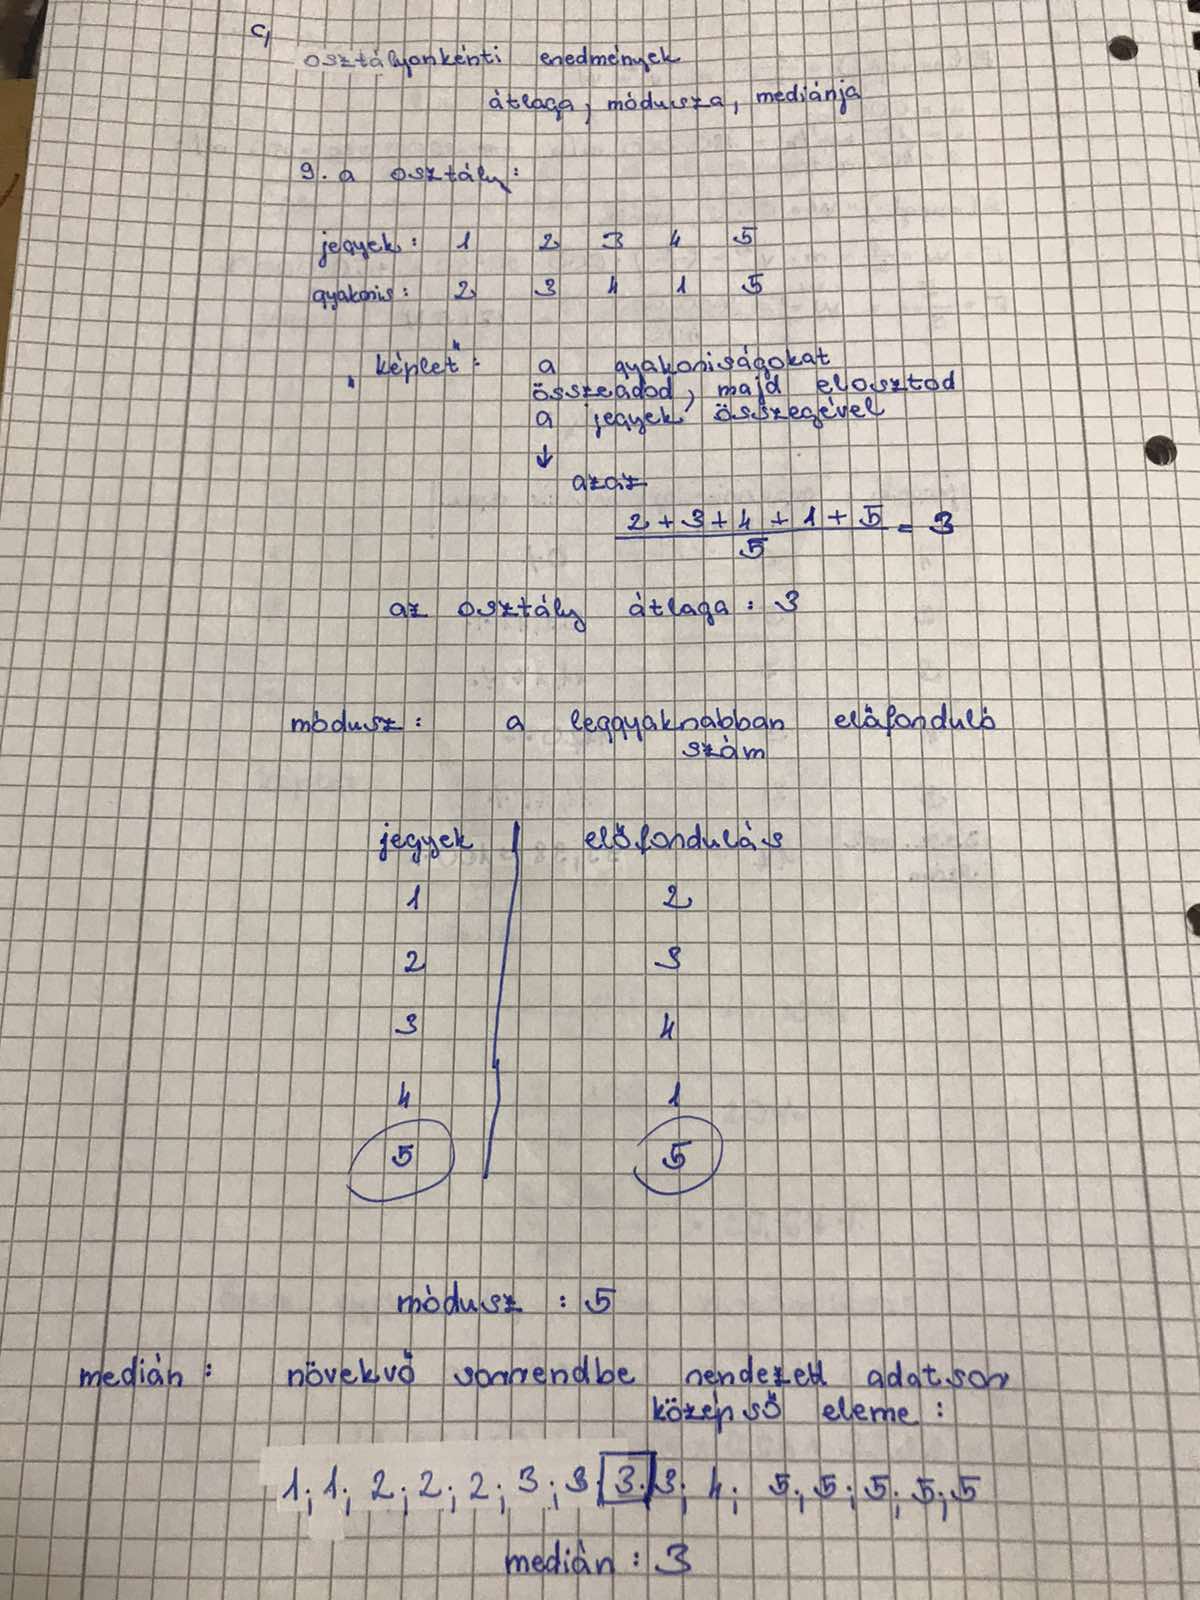 c,
osztályonkénti eredmények
átlaga, módusza, mediánja
9. a osztály:
jegyek: 1 2 3 4 5
gyakoris: 2 3 4 1 5
"képlet": a gyakoriságokat
összeadod, majd elosztod
a jegyek összegével
↓
azaz
2 + 3 + 4 + 1 + 5 = 3
5
az osztály átlaga: 3
módusz: a leggyakrabban előforduló
szám
jegyek | előfordulás
1 2
2 3
3 4
4 1
5 5
módusz: 5
medián: növekvő sorrendbe rendezett adatsor
középső eleme:
1; 1; 2; 2; 2; 3; 3; 3; 3; 4; 5; 5; 5; 5; 5
medián: 3